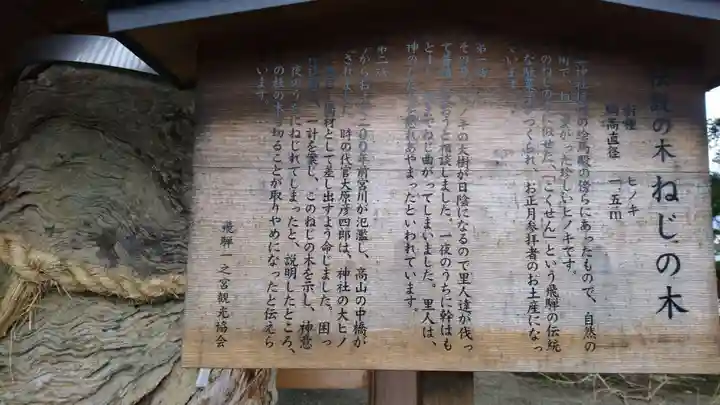 伝説の木 ねじの木
樹種 ヒノキ
胸高直径 一.五m
神社 の絵馬殿の傍らにあったもので、自然の
曲がった珍しいヒノキです。
のねじ に似せた、「こくせん」という飛騨の伝統
な駄菓子がつくられ、お正月参拝者のお土産になっ
ています。
第一話
その キの大樹が日陰になるので里人達が伐っ
て うと相談しました。一夜のうちに幹はも
と ねじ曲がってしまいました。里人は、
神の れあやまったといわれています。
第二話
今からおよそ二〇〇年前宮川が氾濫し、高山の中橋が
されました。時の代官大原彦四郎は、神社の大ヒノ
材として差し出すよう命じました。困っ
一計を案じ、このねじの木を示し、神意
夜のうちにねじれてしまったと、説明したところ、
の社の木を切ることが取りやめになったと伝えら
います。
飛騨一之宮観光協会